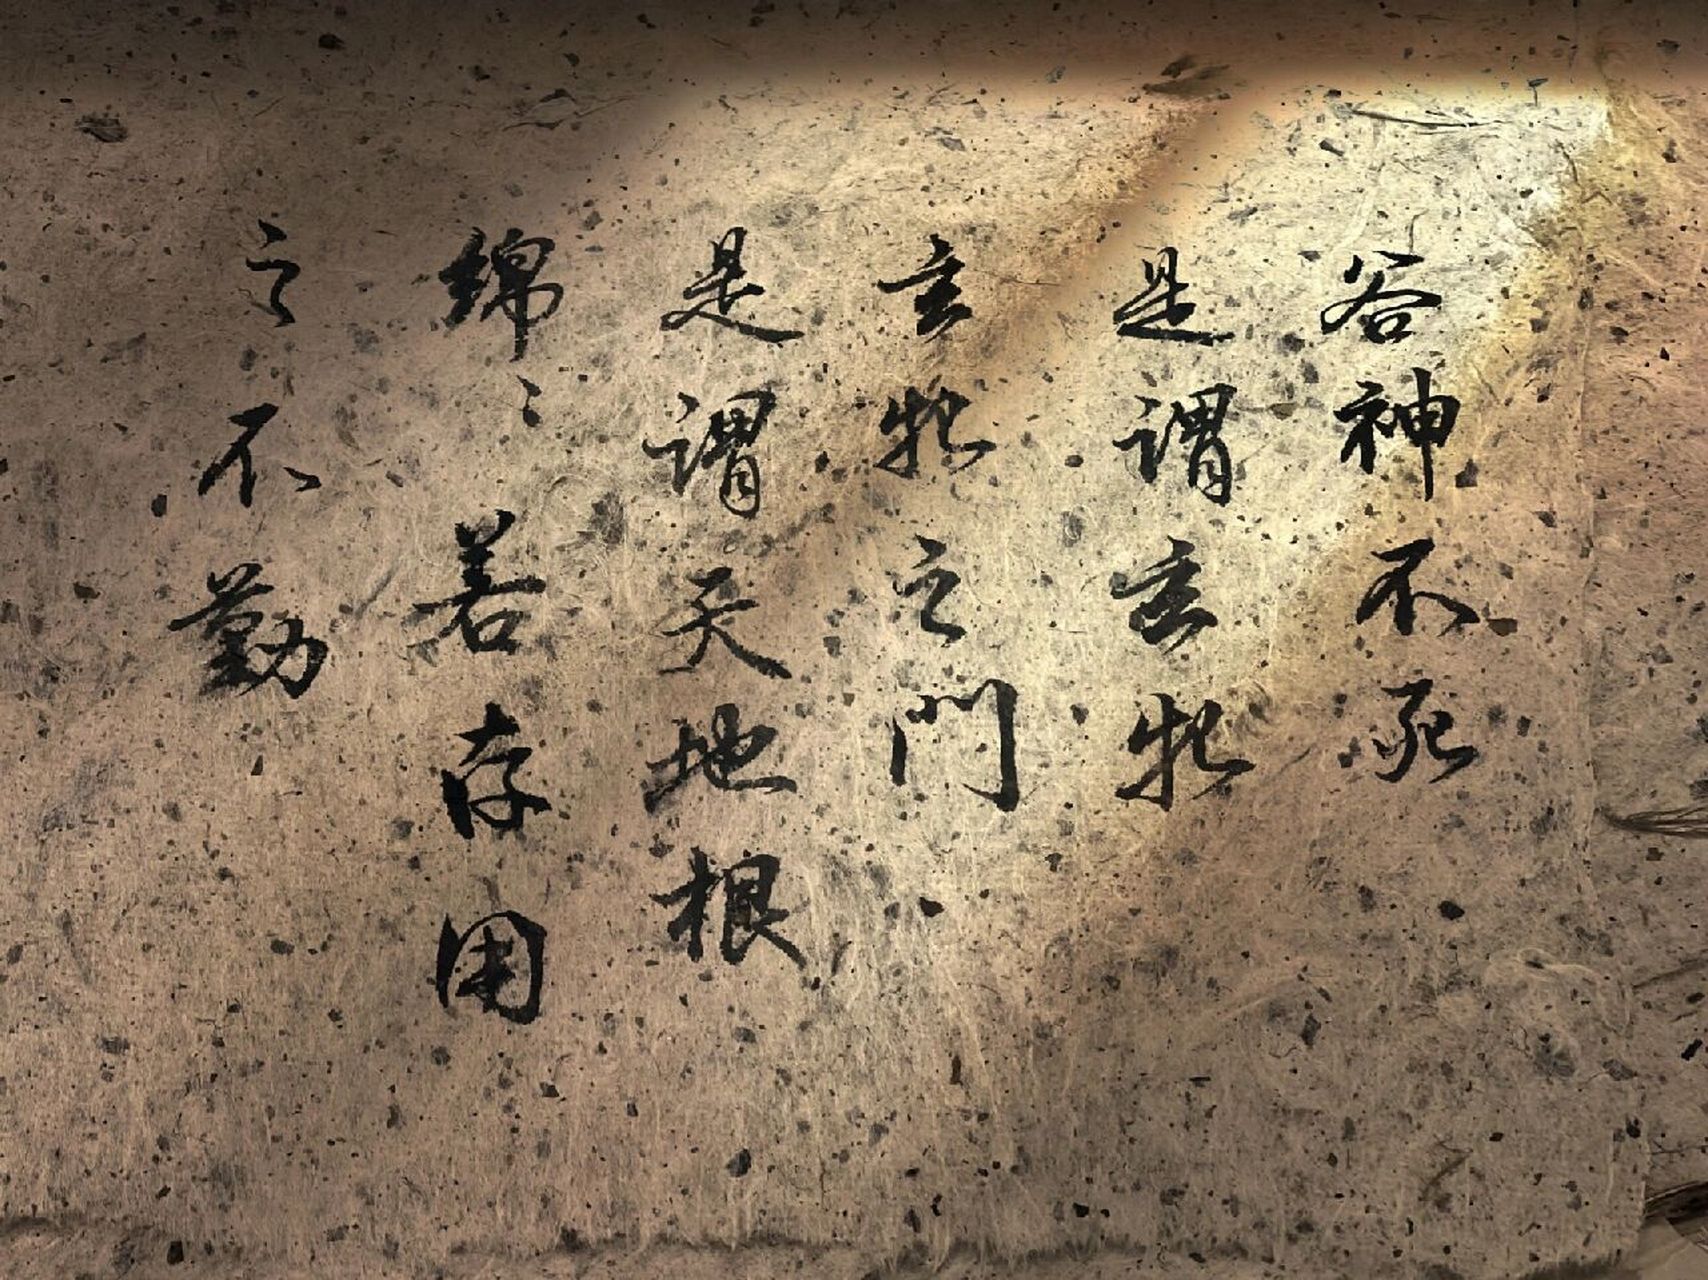 谷神不死
是謂玄牝
玄牝之門
是謂天地根
綿〻若存用
之不勤